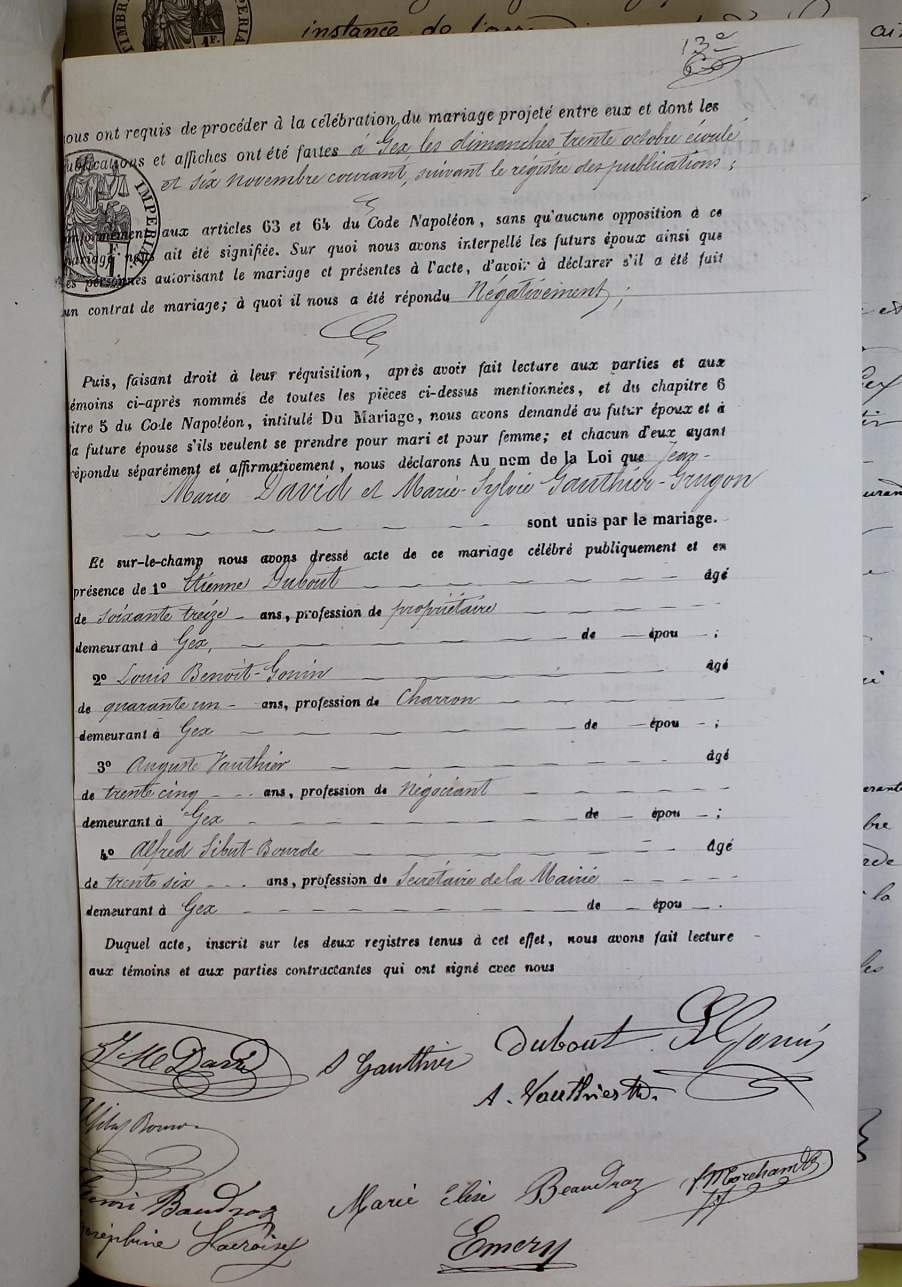 instance de
13e
ous ont requis de procéder à la célébration du mariage projeté entre eux et dont les
ublications et affiches ont été faites à Gex les dimanches trente octobre écoulé
et six novembre courant, suivant le régistre des publications;
IMPERIAL
1 F.
onformément aux articles 63 et 64 du Code Napoléon, sans qu'aucune opposition à ce
mariage nous ait été signifiée. Sur quoi nous avons interpellé les futurs époux ainsi que
es personnes autorisant le mariage et présentes à l'acte, d'avoir à déclarer s'il a été fait
un contrat de mariage; à quoi il nous a été répondu Négativement;
Puis, faisant droit à leur réquisition, après avoir fait lecture aux parties et aux
émoins ci-après nommés de toutes les pièces ci-dessus mentionnées, et du chapitre 6
itre 5 du Code Napoléon, intitulé Du Mariage, nous avons demandé au futur époux et à
a future épouse s'ils veulent se prendre pour mari et pour femme; et chacun d'eux ayant
répondu séparément et affirmativement, nous déclarons Au nom de la Loi que Jean-
Marie David et Marie-Sylvie Gauthier-Grugon
sont unis par le mariage.
Et sur-le-champ nous avons dressé acte de ce mariage célébré publiquement et en
présence de 1º Etienne Dubout âgé
de soixante treize ans, profession de propriétaire
demeurant à Gex, de épou ;
2º Louis Benoit-Gonin âgé
de quarante un ans, profession de Charron
demeurant à Gex de épou ;
3º Auguste Vauthier âgé
de trente cinq ans, profession de Négociant
demeurant à Gex de épou ;
4º Alfred Sibut-Bourde âgé
de trente six ans, profession de Secrétaire de la Mairie
demeurant à Gex de épou .
Duquel acte, inscrit sur les deux registres tenus à cet effet, nous avons fait lecture
aux témoins et aux parties contractantes qui ont signé avec nous
J M David S Gauthier Dubout Gonin
A. Vauthier
Henri Baudraz Marie Elise Beaudraz Marchand
oséphine Lacroix Emery